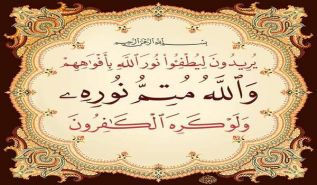 بسم الله الرحمن الرحيم
يُرِيدُونَ لِيُطْفِئُوا۟ نُورَ ٱللَّهِ بِأَفْوَٰهِهِمْ
وَٱللَّهُ مُتِمُّ نُورِهِۦ
وَلَوْ كَرِهَ ٱلْكَٰفِرُونَ